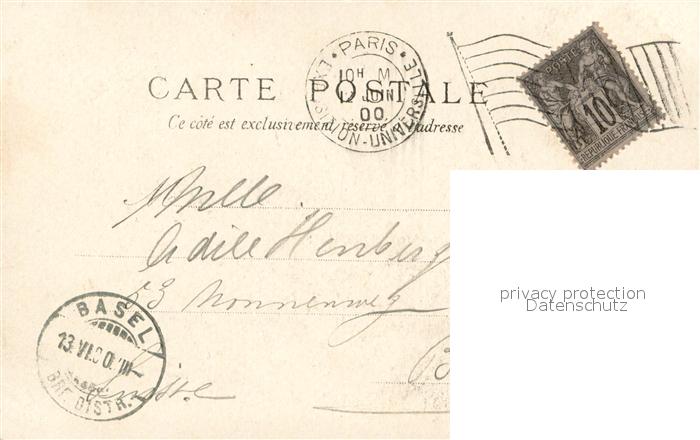 PARIS
EXPOSITION-UNIVERSELLE
10H M
12 JUIN
00
POSTES
10
REPUBLIQUE FRANÇAISE
CARTE POSTALE
Ce côté est exclusivement réservé à l'adresse
Mlle
Adèle Henberg
53 Nonnenweg
B
Suisse
BASEL
13.VI.00.VIII-
BRF. DISTR.
privacy protection
Datenschutz